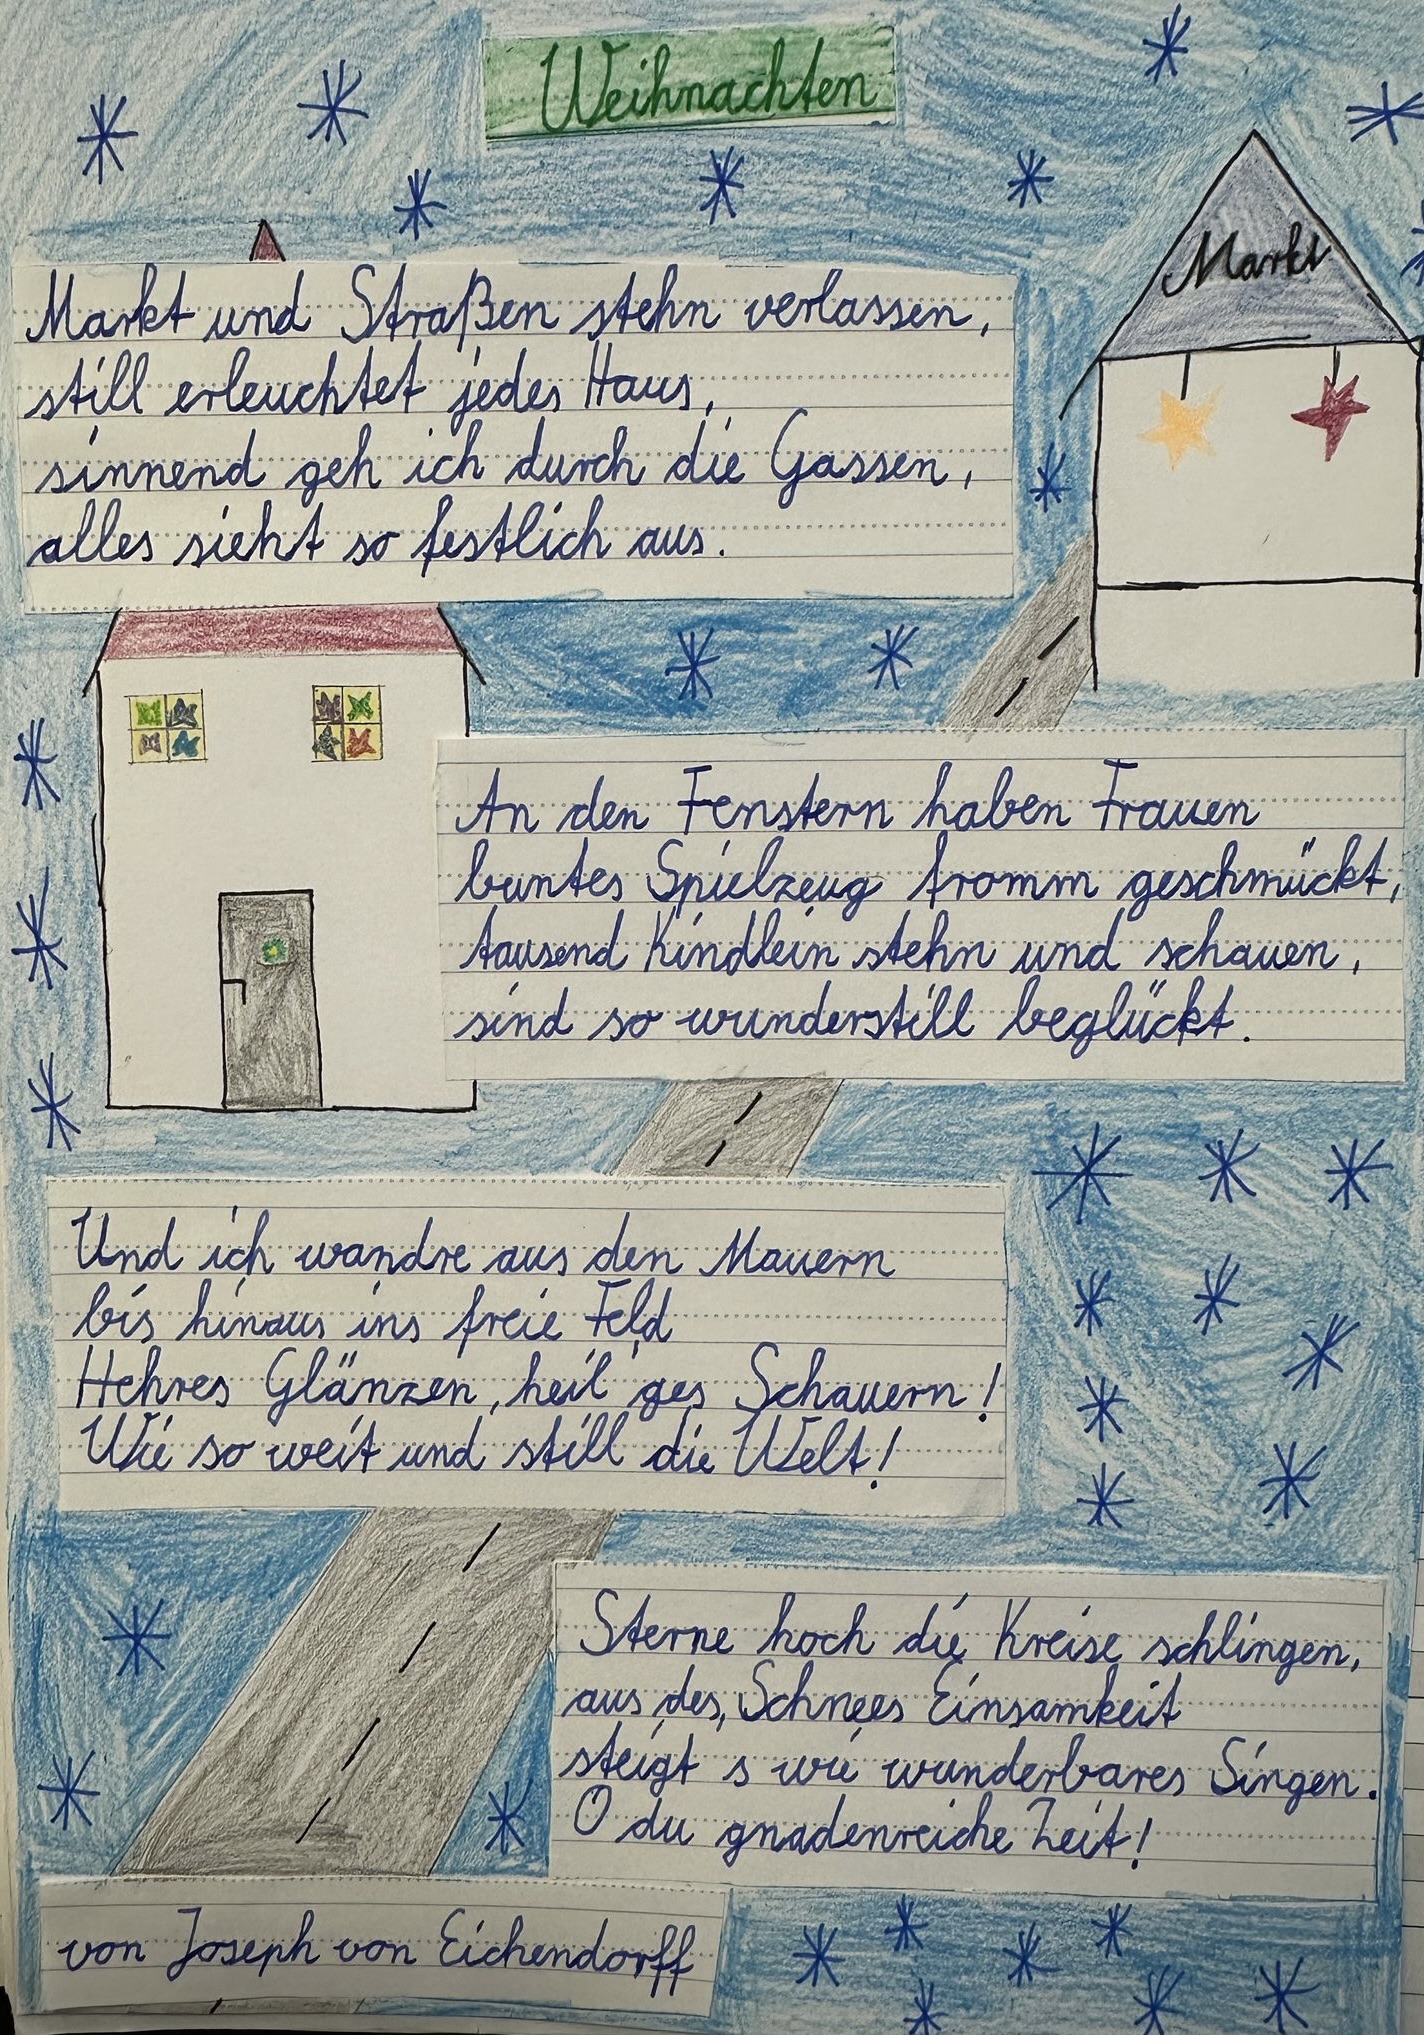 Weihnachten
Markt
Markt und Straßen stehn verlassen,
still erleuchtet jedes Haus,
sinnend geh ich durch die Gassen,
alles sieht so festlich aus.
An den Fenstern haben Frauen
buntes Spielzeug fromm geschmückt,
tausend Kindlein stehn und schauen,
sind so wunderstill beglückt.
Und ich wandre aus den Mauern
bis hinaus ins freie Feld
Hehres Glänzen, heil'ges Schauern!
Wie so weit und still die Welt!
Sterne hoch die Kreise schlingen,
aus des Schnees Einsamkeit
steigt s wie wunderbares Singen.
O du gnadenreiche Zeit!
von Joseph von Eichendorff